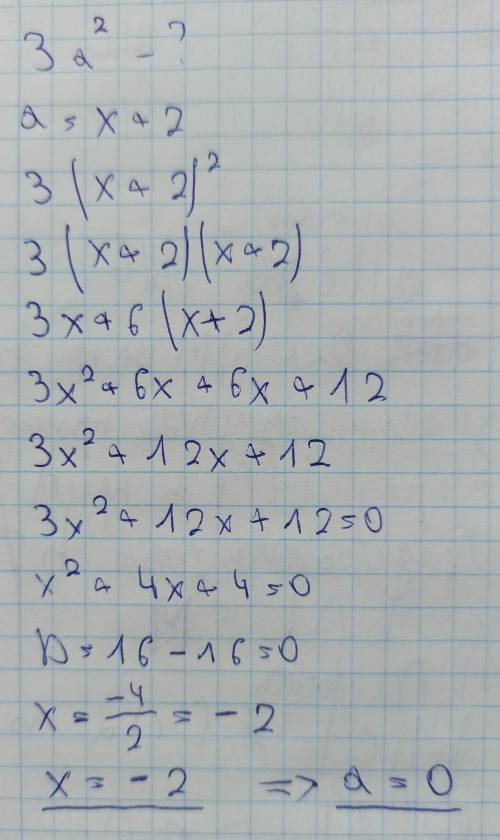 3a² - ?
a = x + 2
3(x + 2)²
3(x + 2)(x + 2)
3x + 6(x + 2)
3x² + 6x + 6x + 12
3x² + 12x + 12
3x² + 12x + 12 = 0
x² + 4x + 4 = 0
D = 16 - 16 = 0
x = -4/2 = -2
x = -2 => a = 0